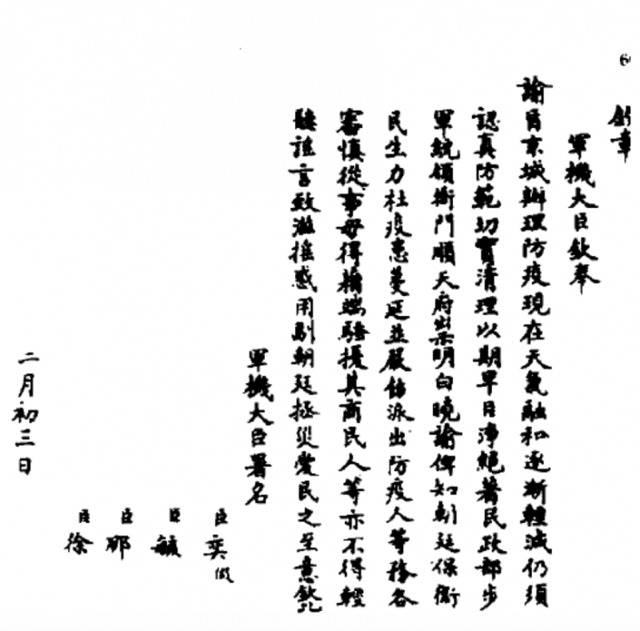 鈐章
軍機大臣欽奉
諭旨京城辦理防疫現在天氣融和逐漸輕減仍須
認真防範切實清理以期早日淨絕著民政部步
軍統領衙門順天府出示明白曉諭俾知朝廷保衛
民生力杜疫患蔓延並嚴飭派出防疫人等務各
審慎從事毋得藉端騷擾其商民人等亦不得輕
聽謠言致滋搖惑用副朝廷拯災愛民之至意欽此
軍機大臣署名
臣奕假
臣毓
臣那
臣徐
二月初三日